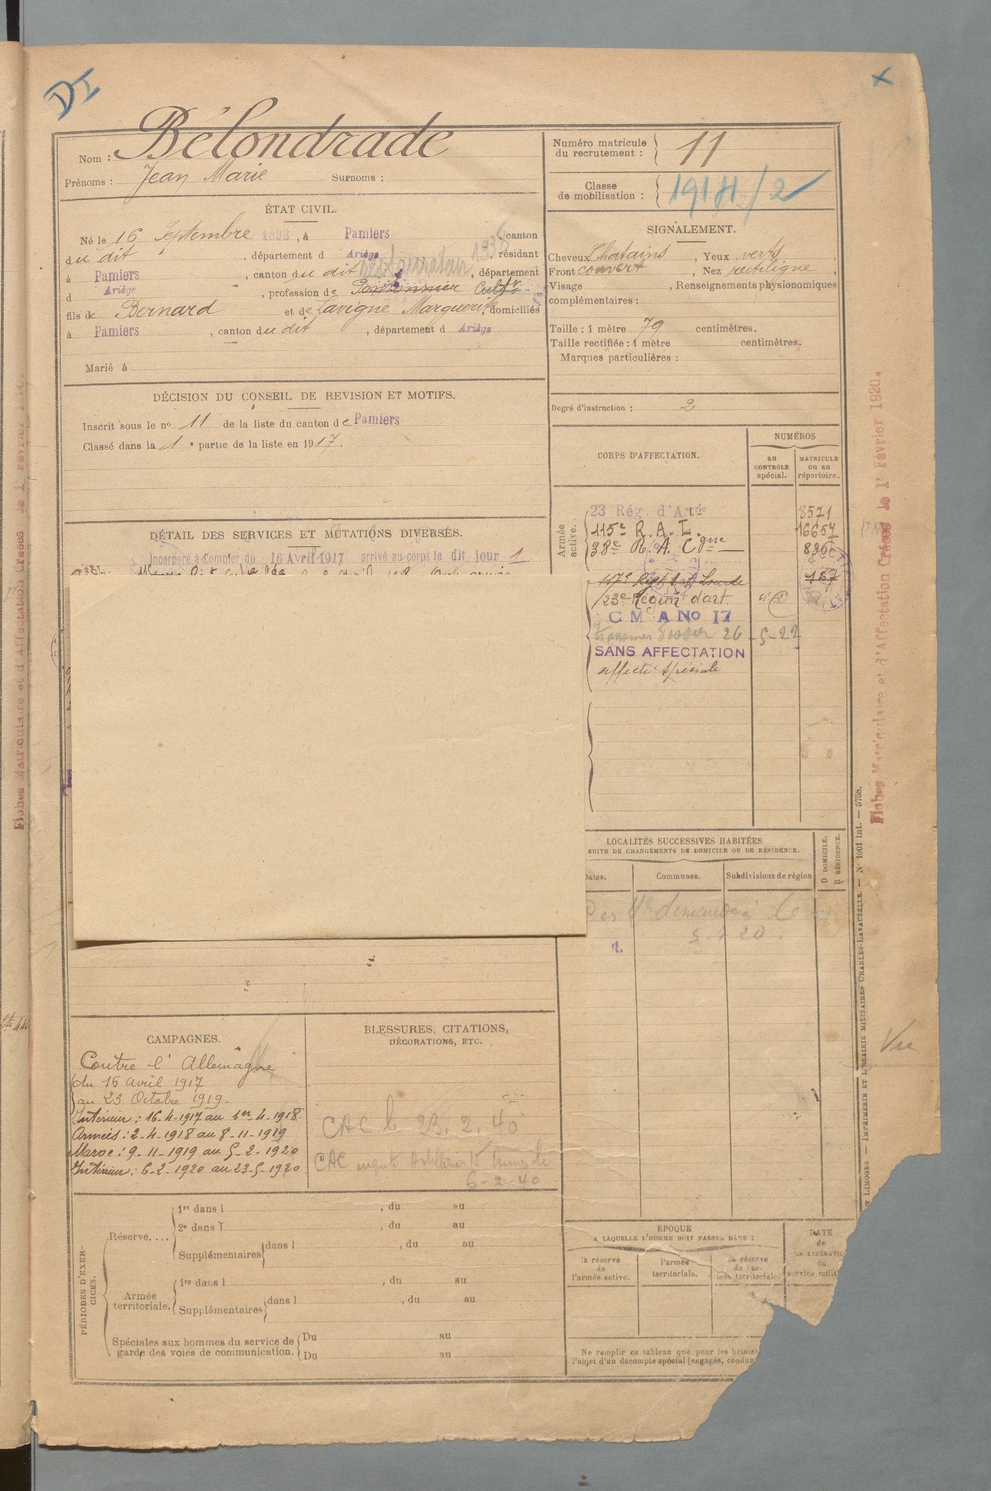 DI
Nom : Bélondrade
Prénoms : Jean Marie Surnoms :
Numéro matricule du recrutement : 11
Classe de mobilisation : 1914/2
ÉTAT CIVIL.
Né le 16 Septembre 1898, à Pamiers canton
du dit, département d Ariège résidant
à Pamiers, canton du dit, département
d Ariège, profession de Cultr.
fils de Bernard et de Lavigne Marguerite domiciliés
à Pamiers, canton du dit, département d Ariège
Marié à
SIGNALEMENT.
Cheveux Chatains, Yeux verts
Front couvert, Nez rectiligne,
Visage , Renseignements physionomiques
complémentaires :
Taille : 1 mètre 79 centimètres.
Taille rectifiée : 1 mètre centimètres.
Marques particulières :
Degré d'instruction : 2
DÉCISION DU CONSEIL DE REVISION ET MOTIFS.
Inscrit sous le no 11 de la liste du canton de Pamiers
Classé dans la 1e partie de la liste en 1917.
CORPS D'AFFECTATION.
NUMÉROS
AU CONTROLE spécial.
MATRICULE OU AU répertoire.
Armée active.
23 Rég. d'Artie 8571
115e R.A.L. 16657
38e R.A.Cgne
117e Régt art Lourde 167
23e Régim d'art
C M A No 17
26-5-27
SANS AFFECTATION
affecté spéciale
DÉTAIL DES SERVICES ET MUTATIONS DIVERSES.
Incorporé à compter du 16 Avril 1917 arrivé au corps le dit jour
LOCALITÉS SUCCESSIVES HABITÉES
SUITE DE CHANGEMENTS DE DOMICILE OU DE RÉSIDENCE.
Dates.
Communes.
Subdivisions de région
D. DOMICILE.
R. RÉSIDENCE.
CAMPAGNES.
Contre l'Allemagne
du 16 avril 1917
au 23 Octobre 1919.
Intérieur : 16-4-1917 au 1er-4-1918
Armées : 2-4-1918 au 8-11-1919
Maroc : 9-11-1919 au 5-2-1920
Intérieur : 6-2-1920 au 23-5-1920
BLESSURES, CITATIONS,
DÉCORATIONS, ETC.
CAC le 23.2.40
CAC
6-2-40
PÉRIODES D'EXERCICES.
Réserve, ....
1re dans l , du au
2e dans l , du au
Supplémentaires dans l , du au
Armée territoriale.
1re dans l , du au
Supplémentaires dans l , du au
Spéciales aux hommes du service de
garde des voies de communication.
Du au
Du au
ÉPOQUE
A LAQUELLE L'HOMME DOIT PASSER DANS :
la réserve de l'armée active.
l'armée territoriale.
la réserve de l'armée territoriale.
DATE de
Ne remplir ce tableau que pour les
l'objet d'un décompte spécial (engagés,
Fiches Matriculaire et d'Affectation Créées le 1r Février 1920.
IMPRIMERIE ET LIBRAIRIE MILITAIRES CHARLES-LAVAUZELLE. — No 1001 int. — 5758.
Vu